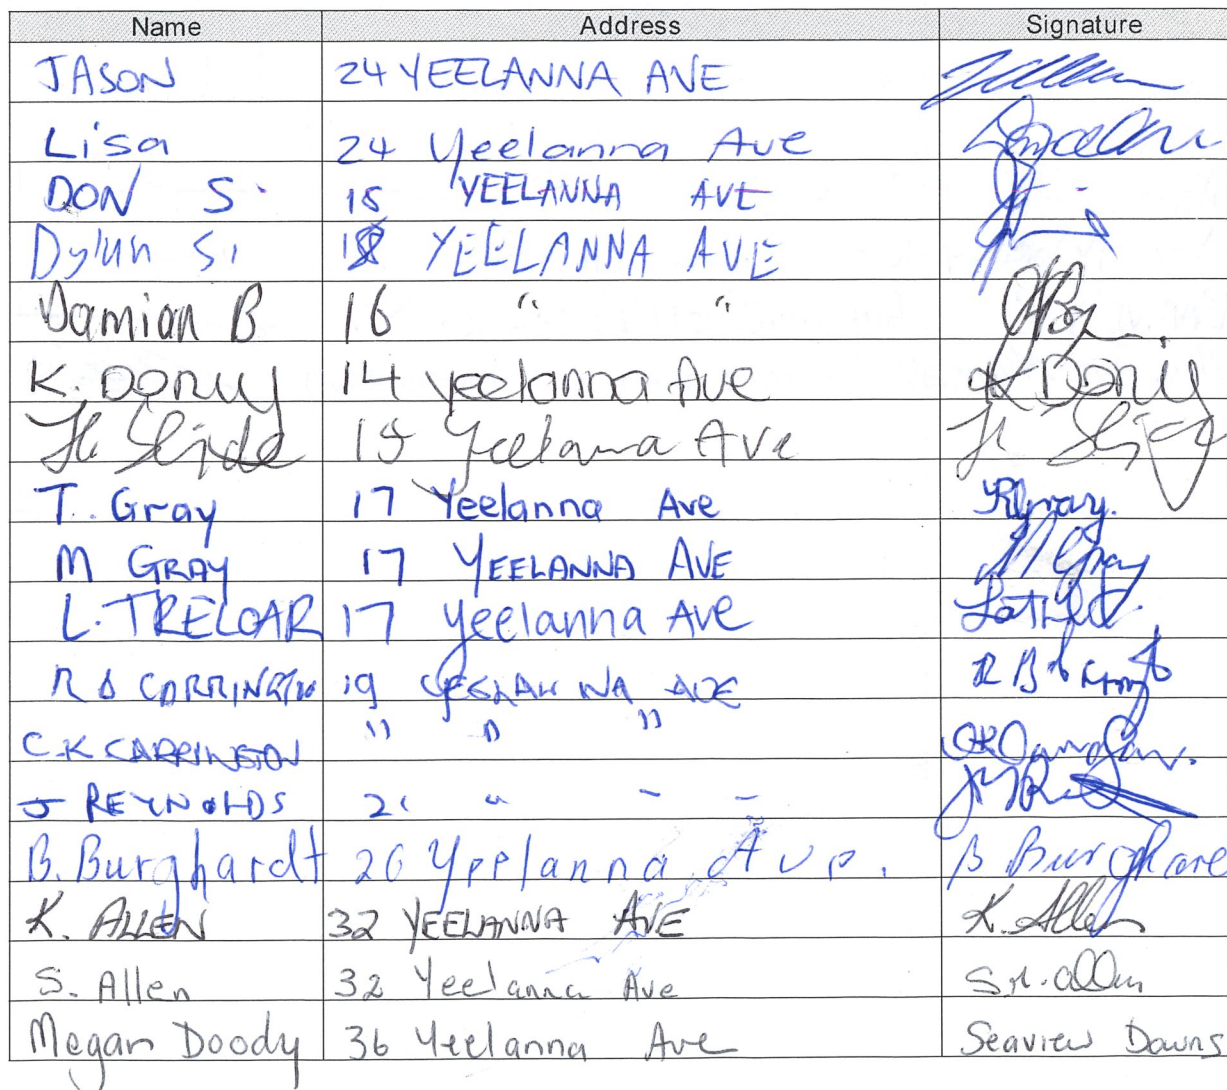 Name Address Signature
JASON 24 YEELANNA AVE
Lisa 24 Yeelanna Ave
DON S. 18 YEELANNA AVE
Dylun S. YEELANNA AVE
Damian B 16 " "
K. DORIY 14 yeelanna Ave K DORIY
Yeelanna Ave
T. Gray 17 Yeelanna Ave Gray.
M GRAY 17 YEELANNA AVE M Gray
L. TRELOAR 17 yeelanna Ave
CARRINGTON 19 YEELANNA AVE
C.K CARRINGTON " " "
J REYNOLDS " - -
B. Burghardt 26 Yeelanna Ave. B. Burghardt
K. ALLEN 32 YEELANNA AVE K. Allen
S. Allen 32 Yeelanna Ave S.M. Allen
Megan Doody 36 Yeelanna Ave Seaview Downs